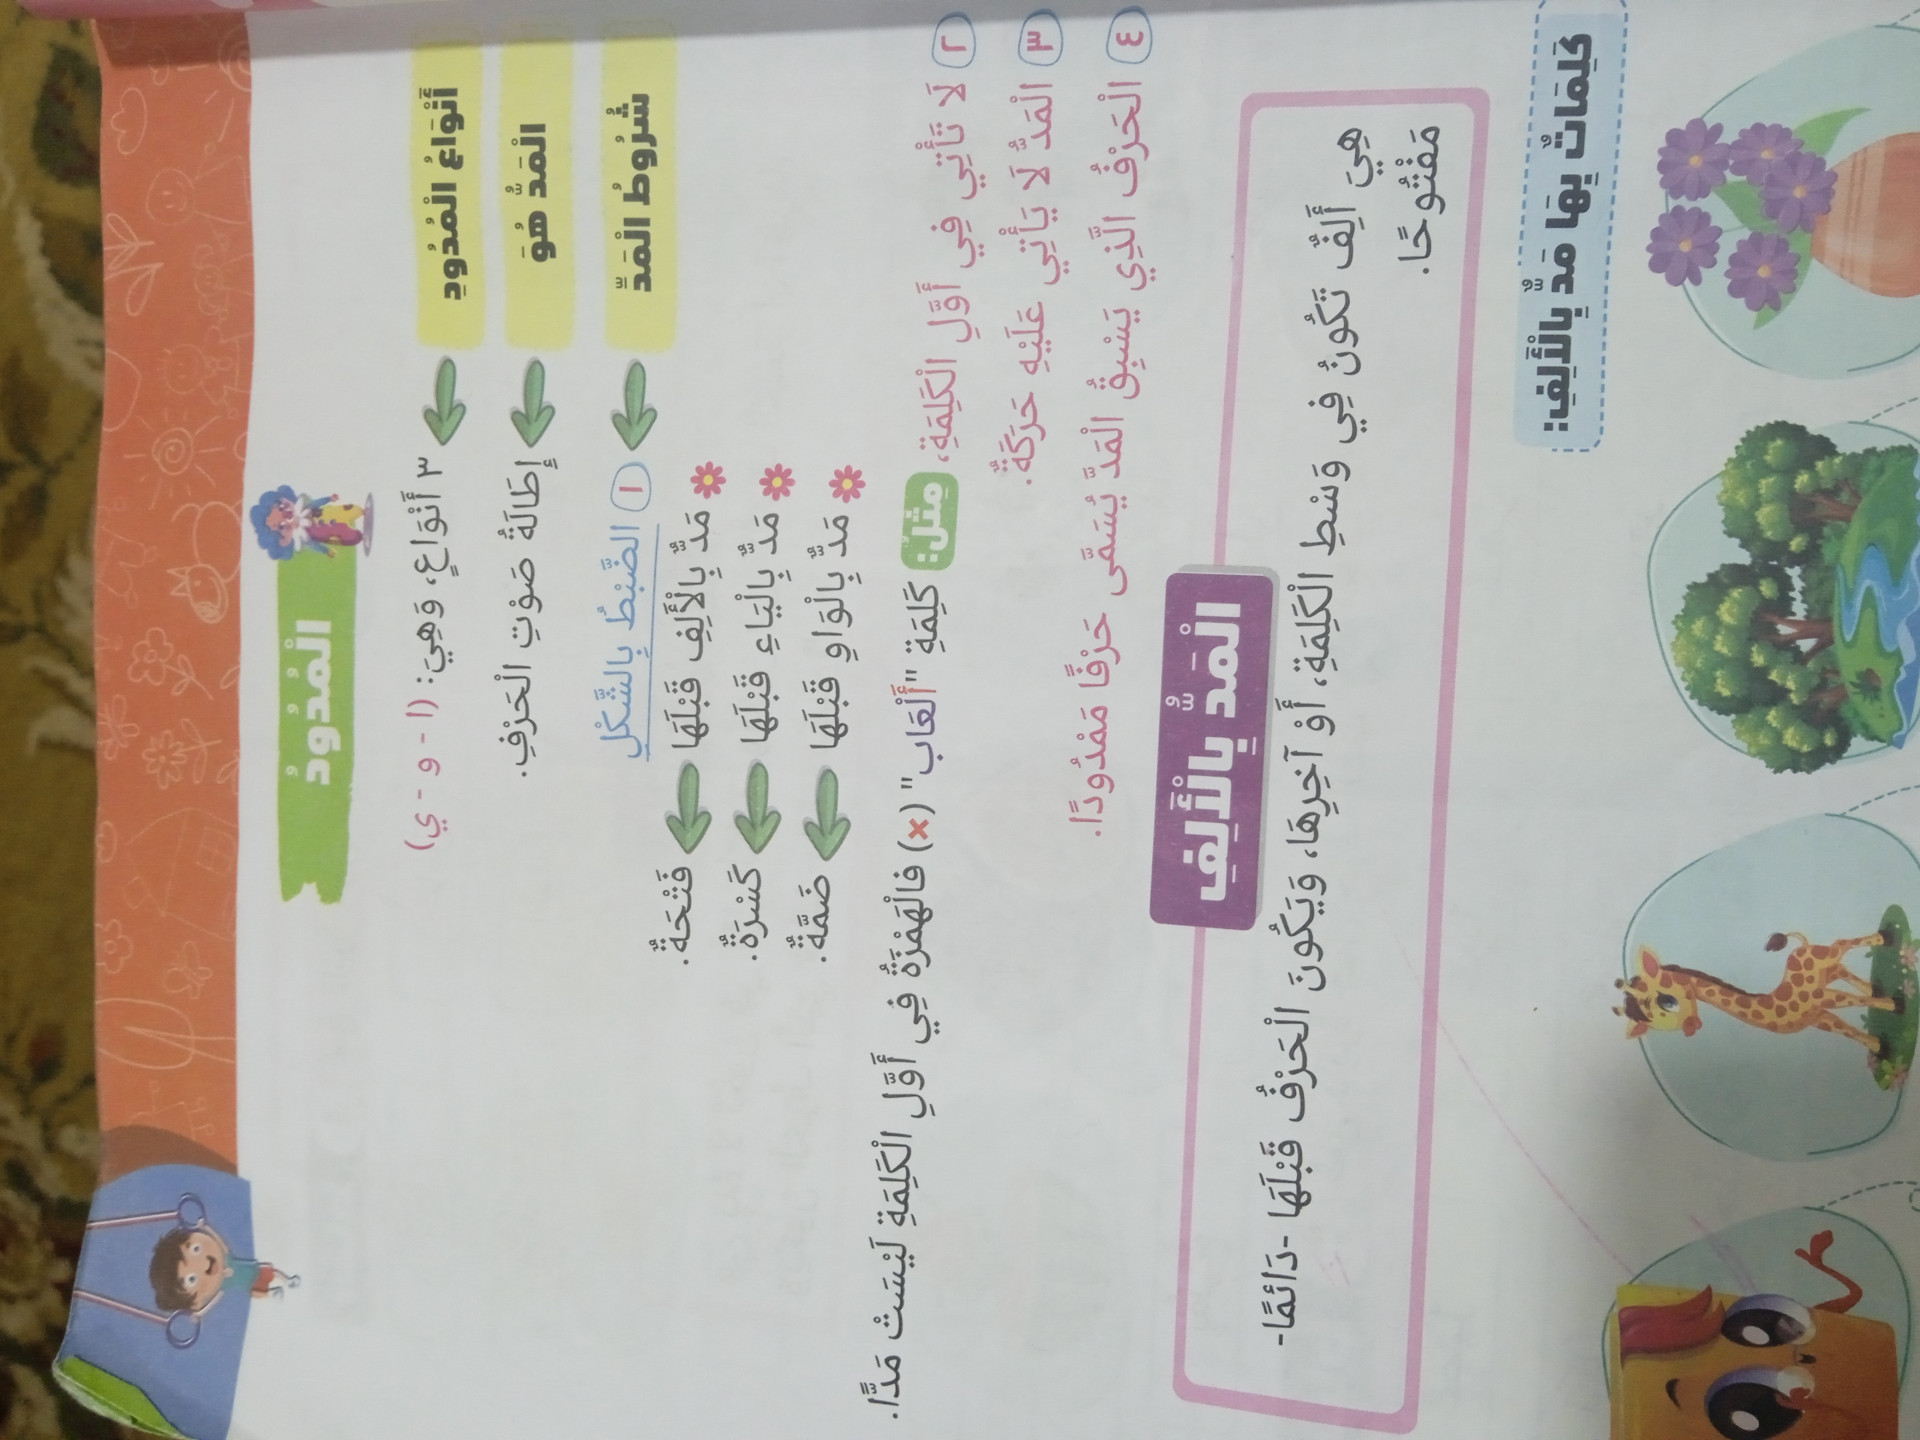 الْمُدُودُ
أَنْوَاعُ الْمُدُودِ ٣ أَنْوَاعٍ، وَهِيَ: (ا - و - ي)
الْمَدُّ هُوَ إِطَالَةُ صَوْتِ الْحَرْفِ.
شُرُوطُ الْمَدِّ ١ الضَّبْطُ بِالشَّكْلِ
مَدٌّ بِالْأَلِفِ قَبْلَهَا فَتْحَةٌ.
مَدٌّ بِالْيَاءِ قَبْلَهَا كَسْرَةٌ.
مَدٌّ بِالْوَاوِ قَبْلَهَا ضَمَّةٌ.
٢ لَا تَأْتِي فِي أَوَّلِ الْكَلِمَةِ، مِثْلُ: كَلِمَةِ "أَلْعَاب" (×) فَالْهَمْزَةُ فِي أَوَّلِ الْكَلِمَةِ لَيْسَتْ مَدًّا.
٣ الْمَدُّ لَا يَأْتِي عَلَيْهِ حَرَكَةٌ.
٤ الْحَرْفُ الَّذِي يَسْبِقُ الْمَدَّ يُسَمَّى حَرْفًا مَمْدُودًا.
الْمَدُّ بِالْأَلِفِ
هِيَ أَلِفٌ تَكُونُ فِي وَسْطِ الْكَلِمَةِ، أَوْ آخِرِهَا، وَيَكُونَ الْحَرْفُ قَبْلَهَا -دَائمًا-
مَفْتُوحًا.
كَلِمَاتٌ بِهَا مَدٌّ بِالْأَلِفِ: